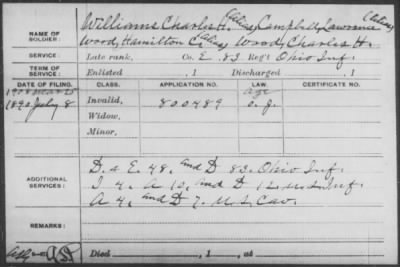 Williams Charles H. (alias) Campbell, Lawrence (alias)
NAME OF SOLDIER: Wood, Hamilton C. (alias) Wood, Charles H.
SERVICE: Late rank, Co. E. 83 Reg't Ohio Inf.
TERM OF SERVICE: Enlisted , 1 Discharged , 1
DATE OF FILING. CLASS. APPLICATION NO. LAW. CERTIFICATE NO.
1908 Mar 25 age
1890 July 8 Invalid, 800489 o. j.
Widow,
Minor,
D. & E. 48, and D 83. Ohio Inf.
ADDITIONAL SERVICES: I 4. A 10, and D 12. U.S. Inf.
A 4, and D 7. U.S. Cav.
REMARKS:
Died , 1 , at